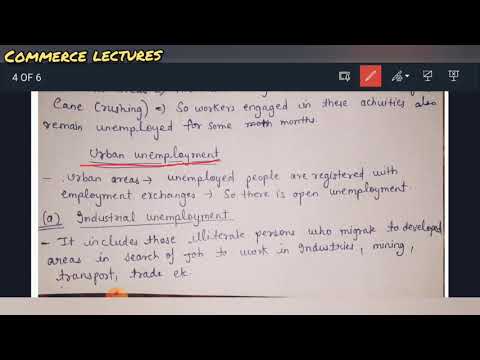 COMMERCE LECTURES
4 OF 6
Cane (crushing) → So workers engaged in these activities also
remain unemployed for some months.
Urban unemployment
- Urban areas → unemployed people are registered with
employment exchanges → So there is open unemployment.
(a) Industrial unemployment
- It includes those illiterate persons who migrate to developed
areas in search of job to work in Industries, mining,
transport, trade etc.